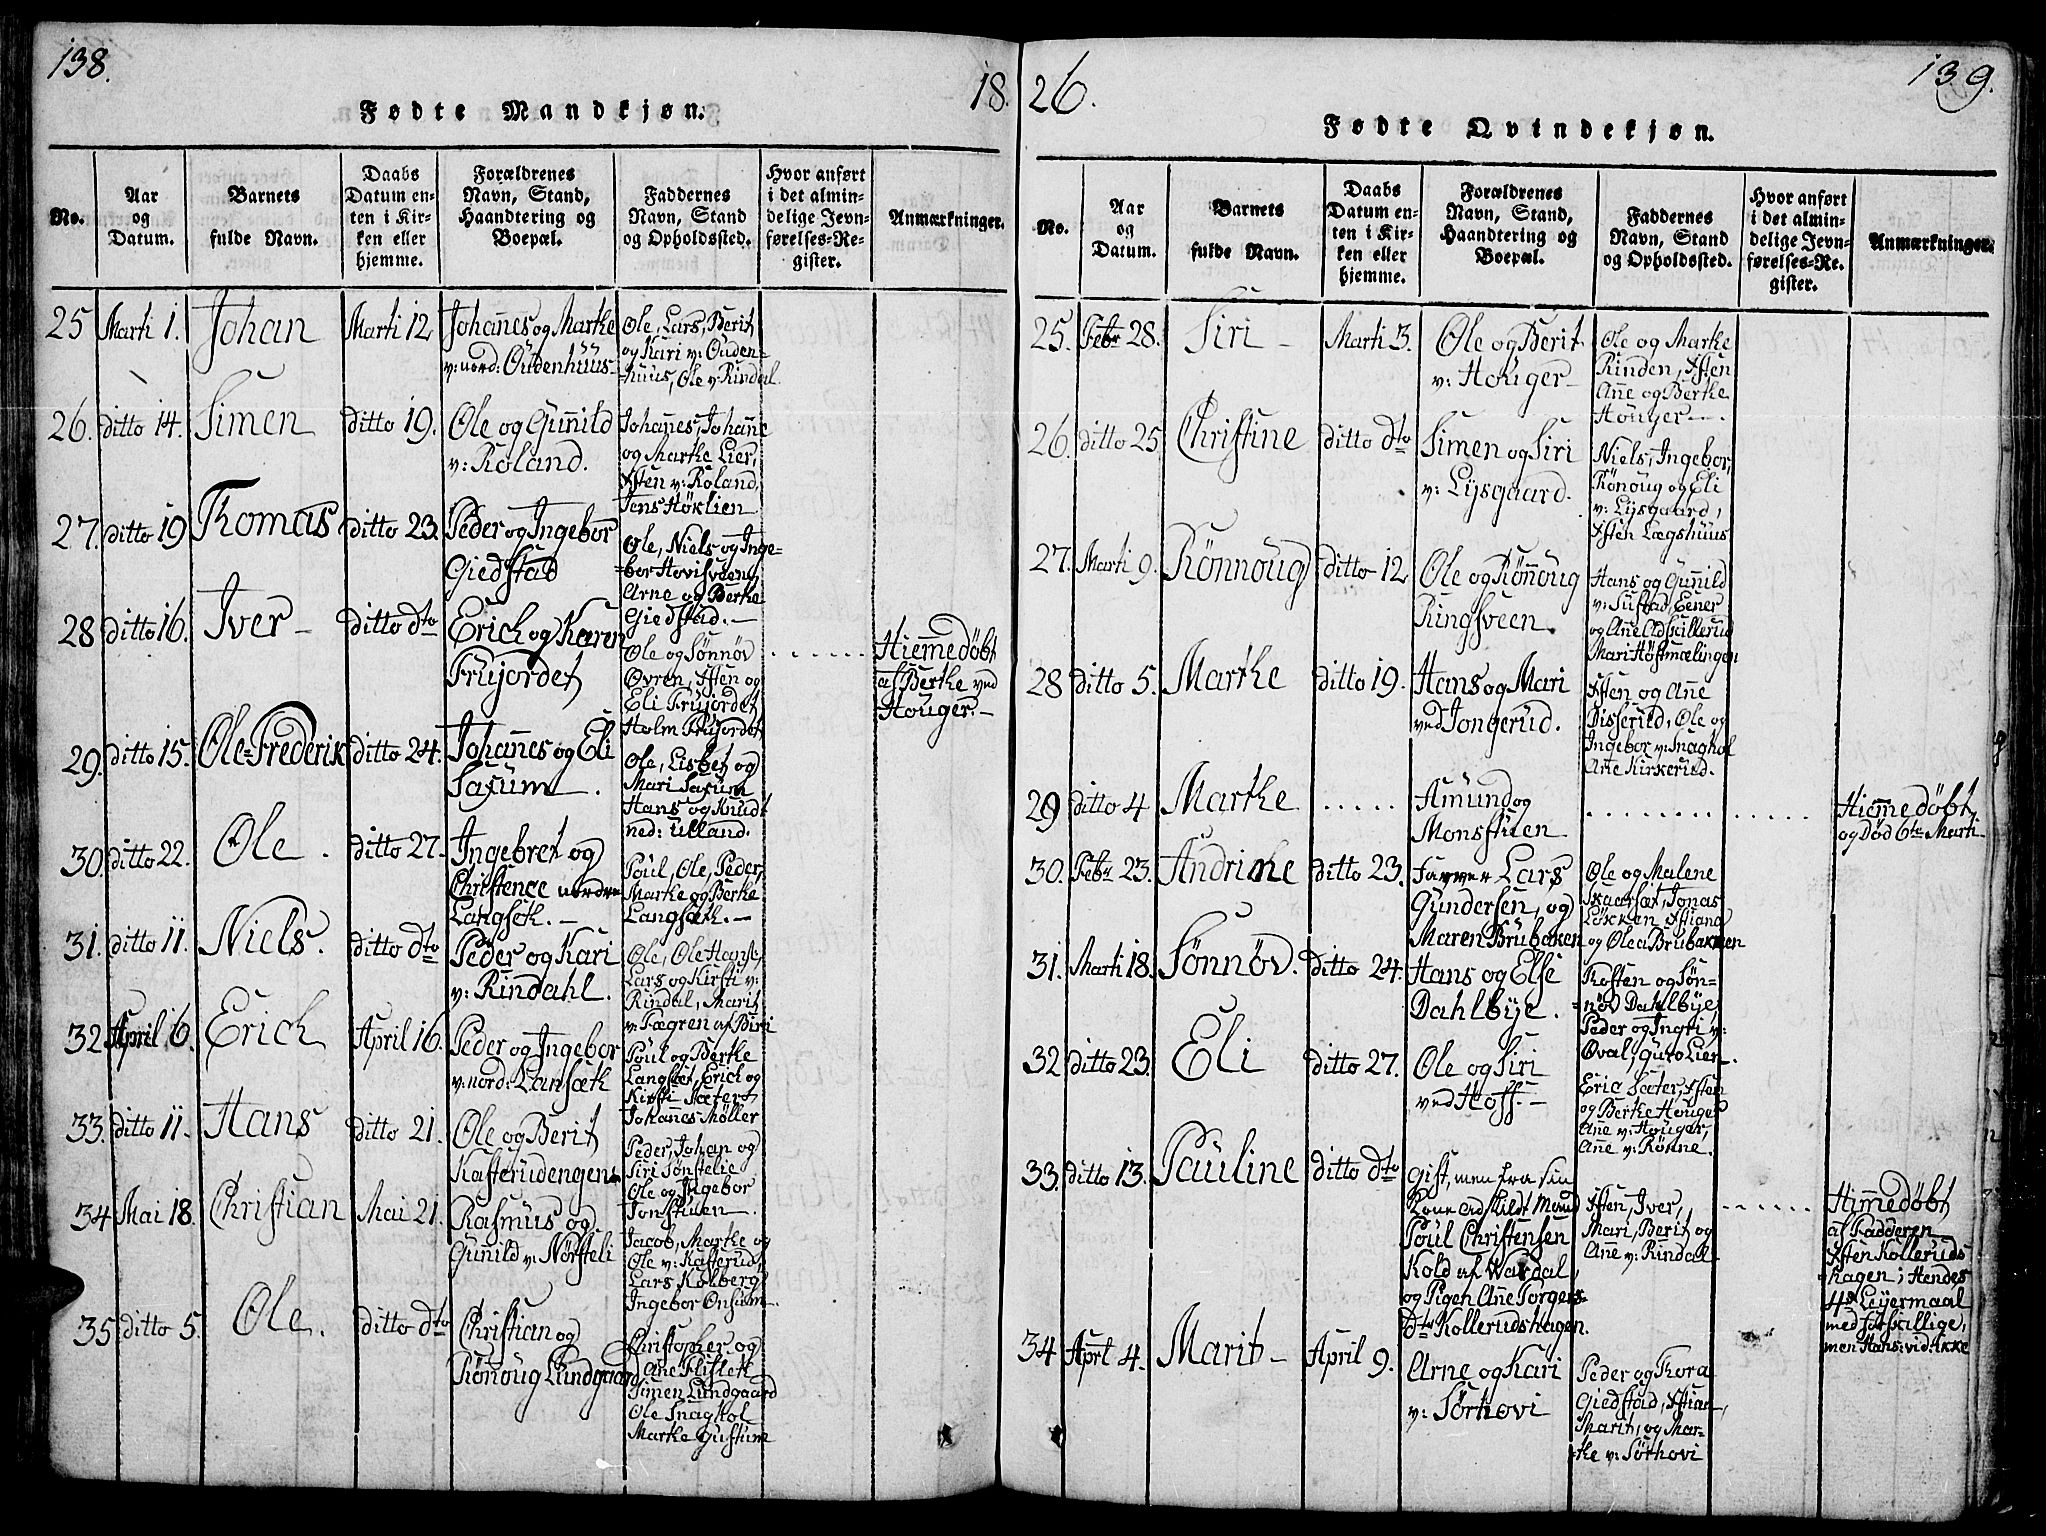 138.
18.
Fødte Mandkjøn.
No.
Aar
og
Datum.
Barnets
fulde Navn.
Daabs
Datum en-
ten i Kir-
ken eller
hjemme.
Forældrenes
Navn, Stand,
Haandtering og
Boepæl.
Faddernes
Navn, Stand
og Opholdssted.
Hvor anført
i det almin-
delige Jevn-
førelses-Re-
gister.
Anmærkninger.
25 Marti 1. Johan Marti 12
Johañes og Marthe
v: nord: Oudenhuus-
Ole, Lars, Berit
og Kari v: Ouden-
=huus, Ole v: Rindal
26. ditto 14. Simen ditto 19.
Ole og Guñild
v: Roland.
Johañes, Johañe
og Marthe Lier,
v: Roland,
Jens Høklien
27. ditto 19 Thomas ditto 23.
Peder og Ingebor
Giedstad
Ole, Niels og Inge-
=bor Hovisveen,
Arne og Berthe
Giedstad.-
28 ditto 16. Iver - ditto dto
Erich og Karen
Frujordet
Ole og Sønnøv
Øvren, og
Eli Frujordet,
Holm Frujordet
Hiemmedøbt
af Berthe ved
Houger.-
29. ditto 15. Ole=Frederik ditto 24.
Johañes og Eli
Saxum.
Ole, Lisbet og
Mari Saxum
Hans og Knudt
ned: Ulland.
30. ditto 22. Ole. ditto 27.
Ingebret og
Christense nordre
Langseth.-
Poul, Ole, Peder,
Marthe og Berthe
Langseth.-
31. ditto 11. Niels. ditto dto
Peder og Kari
v: Rindahl.
Ole, Ole Hans:,
Lars og Kirsti v:
Rindal, Marit
v: Fægren af Biri
32 April 6. Erich April 16.
Peder og Ingebor
v: nord: Lansæth
Poul og Berthe
Langsæt, Erich og
Kirsti Sæter,
Johañes Møller
33. ditto 11. Hans ditto 21.
Ole og Berit
Kasterudengen
Peder, Johan og
Siri Sønstelie
Ole og Ingebor
Jonstuen.
34 Mai 18. Christian Mai 21.
Rasmus og
Gunild v: Nørsteli
Jacob, Marthe og
Ole v: Kasterud,
Lars Kolberg
Ingebor Onsum.
35 ditto 5. Ole. ditto dto
Christian og
Rønoug Lundgaard
Christopher og
Ane Flisleth
Simen Lundgaard
Ole Snaghol
Marthe Gustum
26.
139.
Fødte Qvindekjøn.
No.
Aar
og
Datum.
Barnets
fulde Navn.
Daabs
Datum en-
ten i Kir-
ken eller
hjemme.
Forældrenes
Navn, Stand,
Haandtering og
Boepæl.
Faddernes
Navn, Stand
og Opholdssted.
Hvor anført
i det almin-
delige Jevn-
førelses-Re-
gister.
Anmærkninger.
25. Febr 28. Siri - Marti 3.
Ole og Berit
v: Houger-
Ole og Marthe
Rinden,
Añe og Berthe
Houger-
26. ditto 25 Christine ditto dto
Simen og Siri
v: Lysgaard.
Niels, Ingebor,
Rønoug og Eli
v: Lysgaard,
Lægshuus
27. Marti 9. Rönnoug ditto 12
Ole og Röñoug
Ringsveen.
Hans og Guñild
v: Sustad, Eener
og Añe Adskillerud
Mari Høstmælingen
28 ditto 5. Marthe ditto 19.
Hans og Mari
ved Jongerud.
og Añe
Disserud, Ole og
Ingebor v: Snaghol
Ane Kirkerud.
29 ditto 4 Marthe
Amund og
Monstuen
Hiemmedøbt,
og Død 6te Marti
30. Febr 23. Andrine ditto 23.
Farver Lars
Gundersen, og
Maren Brubaken
Ole og Malene
Skaarsæt, Jonas
Løkken,
og Olea Brubakken
31. Marti 18. Sönnöv. ditto 24.
Hans og Else
Dahlbye.
og Søn-
=nøv Dahlbye,
Peder og Ingri v:
Øval, Guro Lier.
32 ditto 23. Eli ditto 27.
Ole og Siri
ved Hoff.-
Eric Sæter,
og Berthe Houger
Añe v: Houger,
Añe v: Røhne.
33. ditto 13. Pauline ditto dto
Gift, men fra sin
Kone adskildt Mand
Poul Christensen
Kold af Wardal,
og Pigen Ane Torgers-
dtr Kollerudshagen.
Iver,
Mari, Berit og
Añe v: Rindal
Himmedøbt
af Fadderen
Kolleruds
hagen; Hendes
4de Leyermaal
med forskillige,
men Hans: vid ikke
34 Aprl 4. Marit - April 9.
Arne og Kari
v: Sørhovi
Peder og Thora
Giedstad,
Marit, og Mar-
=the v: Sørhovi